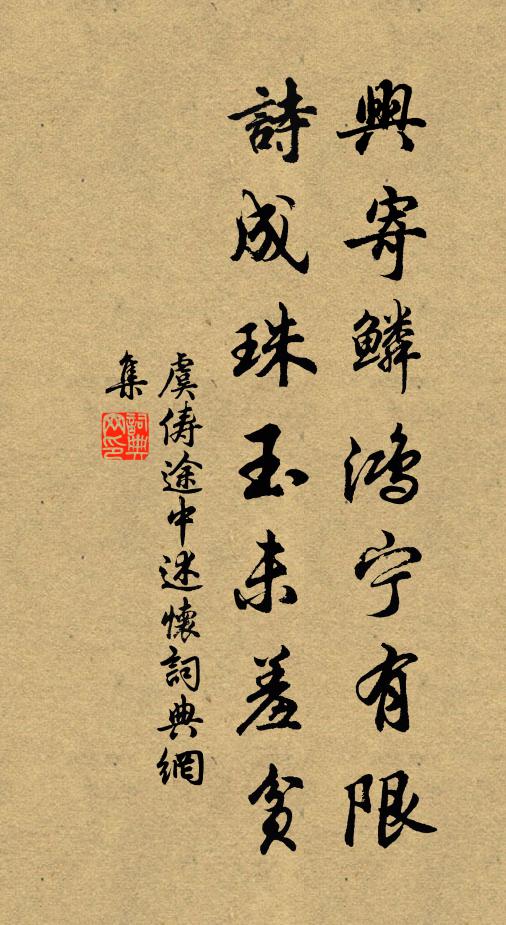 興寄鱗鴻宁有限
詩成珠玉未羞貧
虞俦途中述懷詞典網
集
詞典
网印